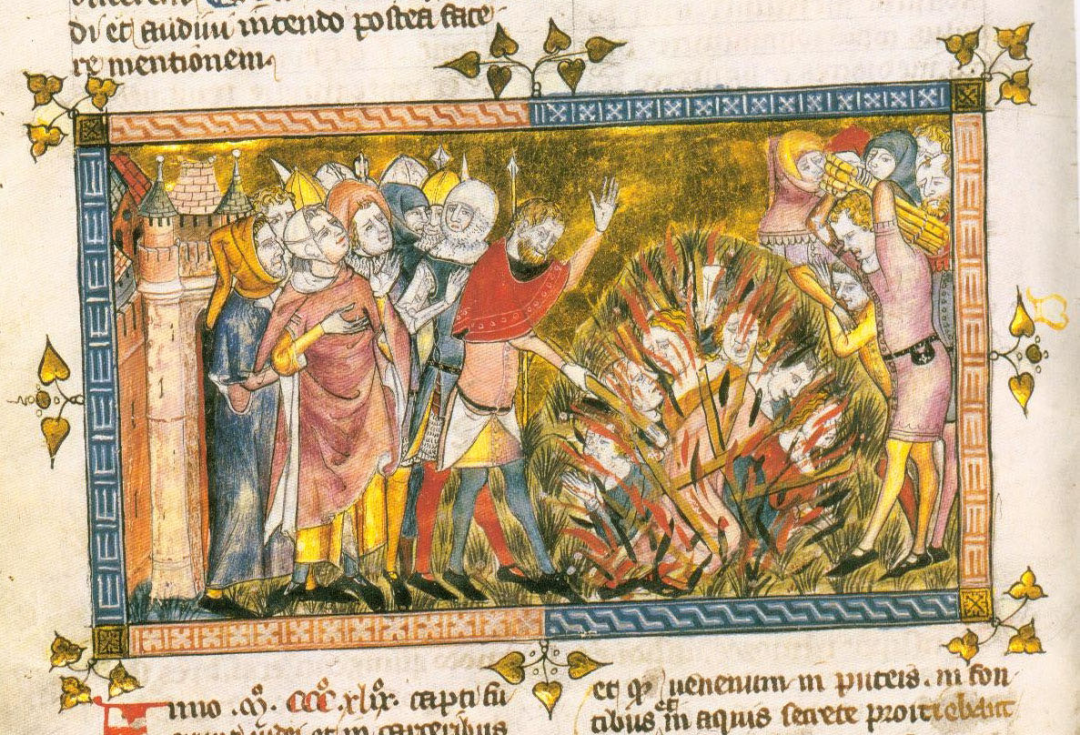 di et audiui intendo postea face
re mentionem.
Anno .mo. ccco. xlix. capti su
et in carceribus
et qd uenenum in puteis. in fon
tibus et in aquis secrete proiciebant